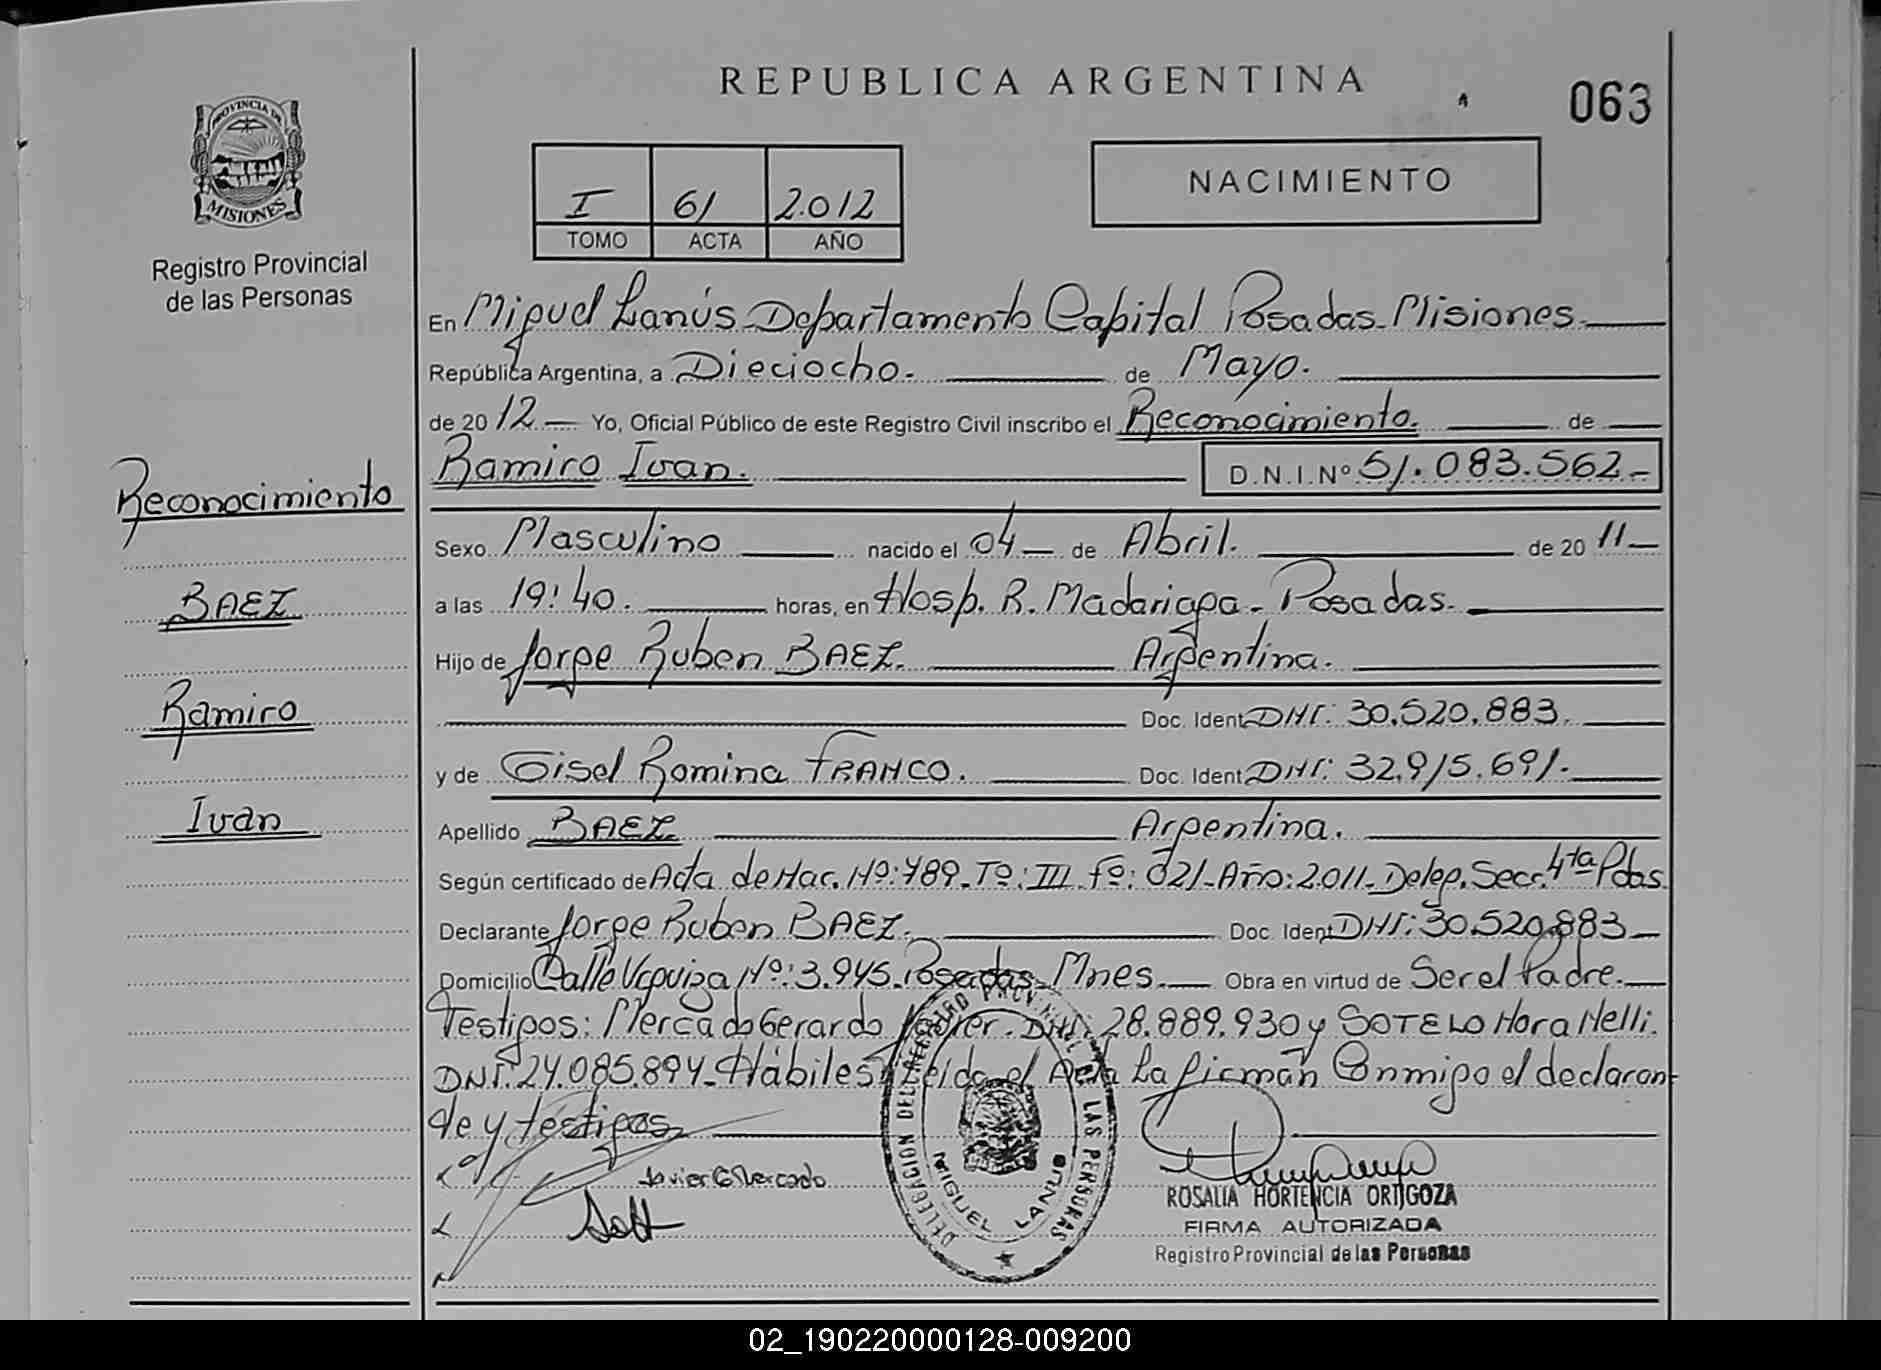 REPUBLICA ARGENTINA
063
PROVINCIA DE
MISIONES
Registro Provincial
de las Personas
I 61 2.012
TOMO ACTA AÑO
NACIMIENTO
En Miguel Lanús - Departamento Capital Posadas - Misiones.
República Argentina, a Dieciocho. de Mayo.
de 20 12 Yo, Oficial Público de este Registro Civil inscribo el Reconocimiento. de
Ramiro Ivan. D.N.I.Nº 51.083.562.-
Reconocimiento
Sexo Masculino nacido el 04 de Abril. de 20 11
BAEZ
a las 19:40. horas, en Hosp. R. Madariaga - Posadas.
Hijo de Jorge Ruben BAEZ. Argentina.
Ramiro
Doc. Ident DNI: 30.520.883.
y de Gisel Romina FRANCO. Doc. Ident DNI: 32.915.691.
Ivan
Apellido BAEZ Argentina.
Según certificado de Acta de Nac. Nº: 789. Tº: III. Fº: 021 - Año: 2.011 - Deleg. Secc. 4ta Pdas.
Declarante Jorge Ruben BAEZ. Doc Ident DNI: 30.520.883
Domicilio Calle Urquiza Nº: 3.945. Posadas - Mnes. Obra en virtud de Ser el Padre.
Testigos: Mercado Gerardo Javier. DNI 28.889.930 y SOTELO Nora Nelli.
DNI. 24.085.894 - Hábiles Leída el Acta La firman Conmigo el declaran-
te y testigos
Javier G Mercado
DELEGACION DEL REGISTRO PROVINCIAL DE LAS PERSONAS
MIGUEL LANUS
ROSALIA HORTENCIA ORTIGOZA
FIRMA AUTORIZADA
Registro Provincial de las Personas
02_190220000128-009200